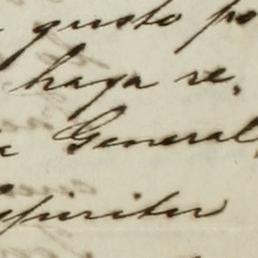 gusto po
haga re.
a General
Espiritu